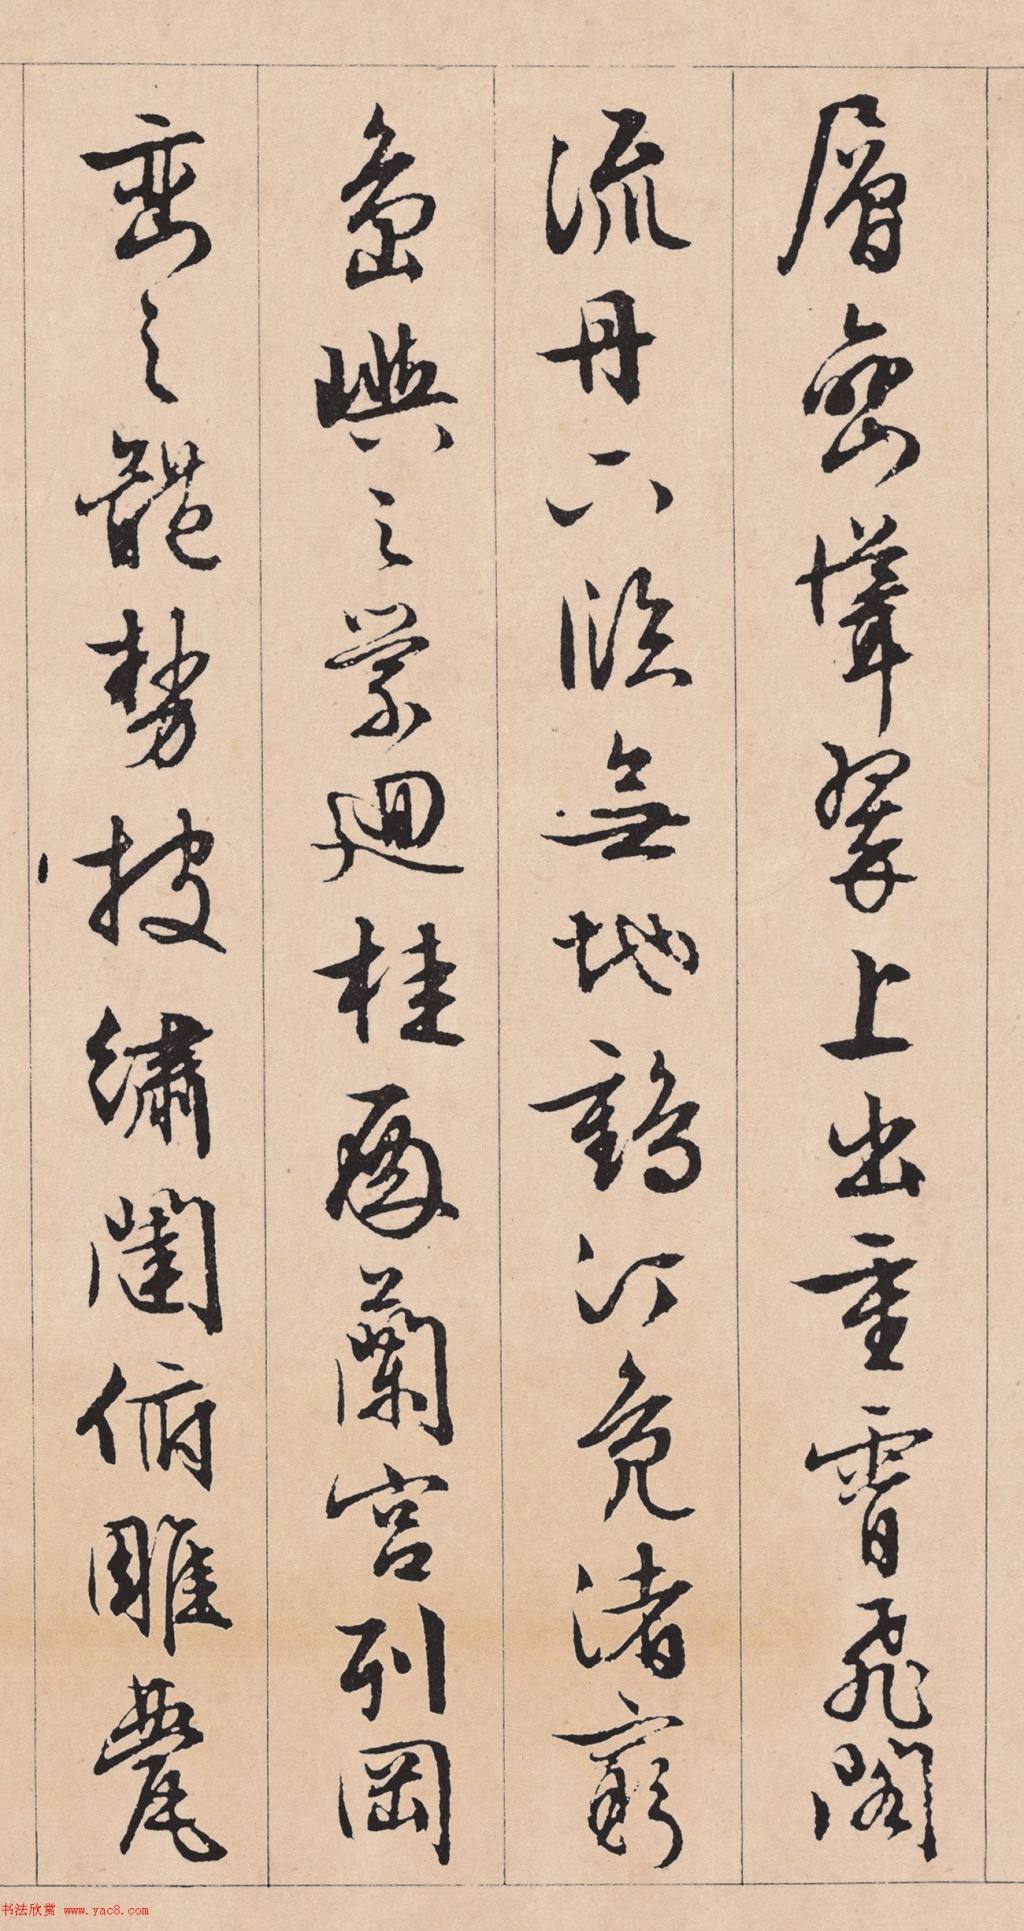 層巒聳翠上出重霄飛閣
流丹下臨無地鶴汀鳧渚窮
島嶼之縈廻桂殿蘭宮列岡
巒之體勢披繡闥俯雕甍
书法欣赏 www.yac8.com